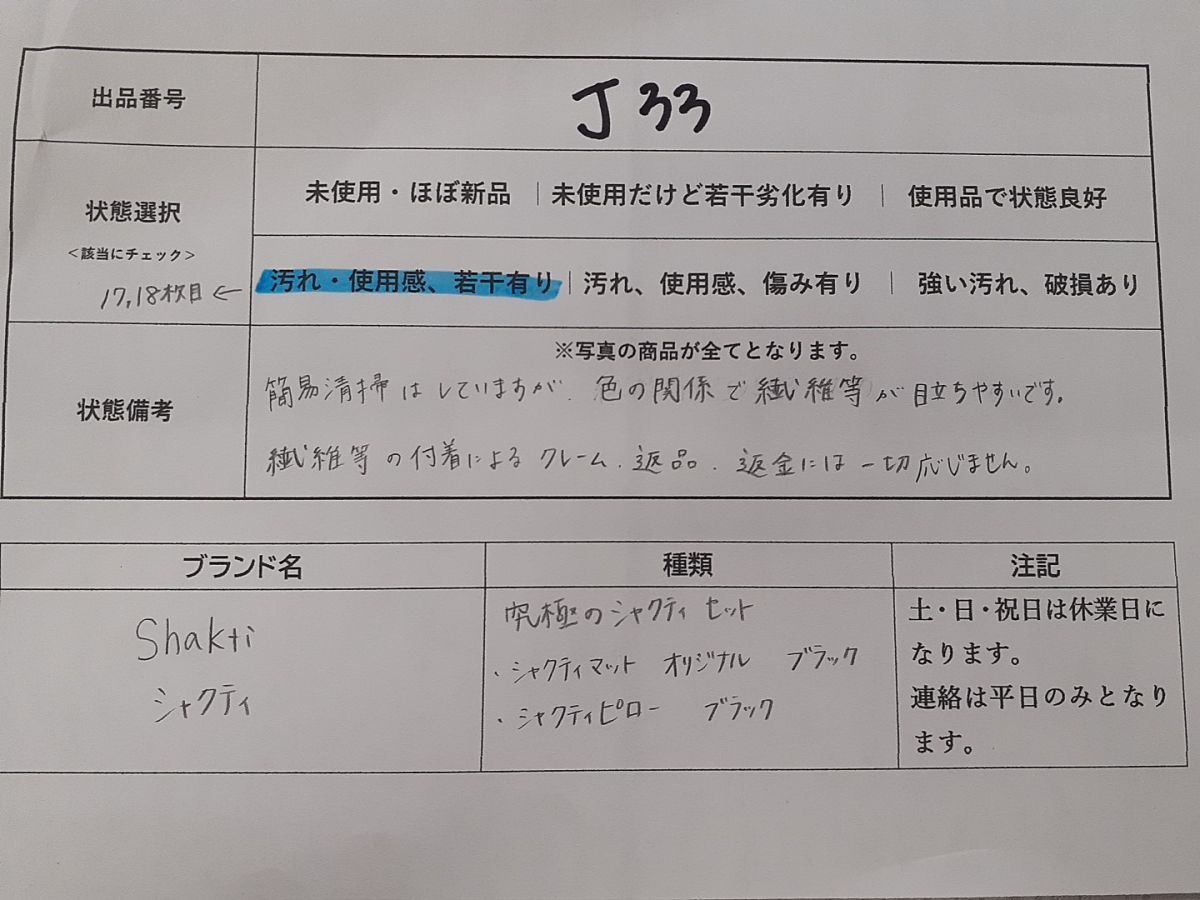 出品番号
J33
状態選択
<該当にチェック>
17,18枚目←
未使用・ほぼ新品 | 未使用だけど若干劣化有り | 使用品で状態良好
汚れ・使用感、若干有り | 汚れ、使用感、傷み有り | 強い汚れ、破損あり
状態備考
※写真の商品が全てとなります。
簡易清掃はしていますが、色の関係で繊維等が目立ちやすいです。
繊維等の付着によるクレーム、返品、返金には一切応じません。
ブランド名
種類
注記
Shakti
シャクティ
究極のシャクティセット
・シャクティマット オリジナル ブラック
・シャクティピロー ブラック
土・日・祝日は休業日に
なります。
連絡は平日のみとなり
ます。